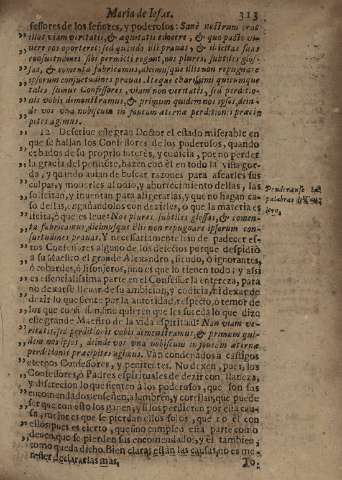 Maria de Iesus. 313
fessores de los señores, y poderosos: Sanè nostrum erat
illos viam veritatis, & æquitatis edocere, & quo pacto vi-
vere eos oporteret: sed quando illi pravas, & illicitas suas
consuetudines sibi permitti rogant, nos plures, subtiles glos-
sas, & comenta fabricamus, dicimusque illis non repugnare
ipsorum consuetudines pravas.
tales sumus Confessores, viam non veritatis, sed perditio-
nis nobis demonstramus, & primum quidem nos ipsos, dein-
de vos una nobiscum in fontem æternæ perditionis præci-
pites agimus.
12 Descrive este gran Doctor el estado miserable en
que se hallan los Confessores de los poderosos, quando
cebados de su proprio interès, y codicia, por no perder
la gracia del penitente, hazen con èl en todo la vista gor-
da, y quando avian de buscar razones para afearles sus
culpas, y moverles al odio, y aborrecimiento dellas, las
solicitan, y inventan para aligerarlas, y que no hagan ca-
so dellas, engañandolos con dezirles, ò que la materia es
licita, ò que es leve: Nos plures subtiles glossas, & comen-
ta fabricamus, dicimusque illis non repugnare ipsorum con-
suetudines pravas. Y necessariamente han de padecer es-
tos Confessores alguno de los defectos porque despidiò
a su Maestro el grande Alexandro, siendo, ò ignorantes,
ò cobardes, ò lisonjeros, uno es que lo tienen todo; y assi
es essencialissima parte en el Confessor la entereza, para
no dexarse llevar de su ambicion, y codicia, ni dexar de
dezir lo que siente por la autoridad, respecto, ò temor de
los que confiessan, sino quieren que les suceda lo que dizo
este grande Maestro de la vida espiritual: Nam viam ve-
ritatis, sed perditionis nobis demonstramus, & primum qui-
dem nos ipsos, deinde vos nobiscum in fontem æternæ
perditionis præcipites agimus. Van condenados a castigos
eternos Confessores, y penitentes. No dexen, pues, los
Confessores, ò Padres espirituales de dezir con llaneza,
y discrecion lo que sienten a los poderosos, que son sus
encomendados; enseñen, alumbren, y corrijan, que puede
ser que con esto los ganen, y si los perdieren por esta cau-
sa, menos es que se pierdan ellos solos, que no èl con
ellos; pues es cierto, que si no cumple esta parte como
deven, que se pierden sus encomendados, y èl tambien,
como queda dicho. Bien claras están las causas, no es me-
nester declararlas mas.
palabras de
To.